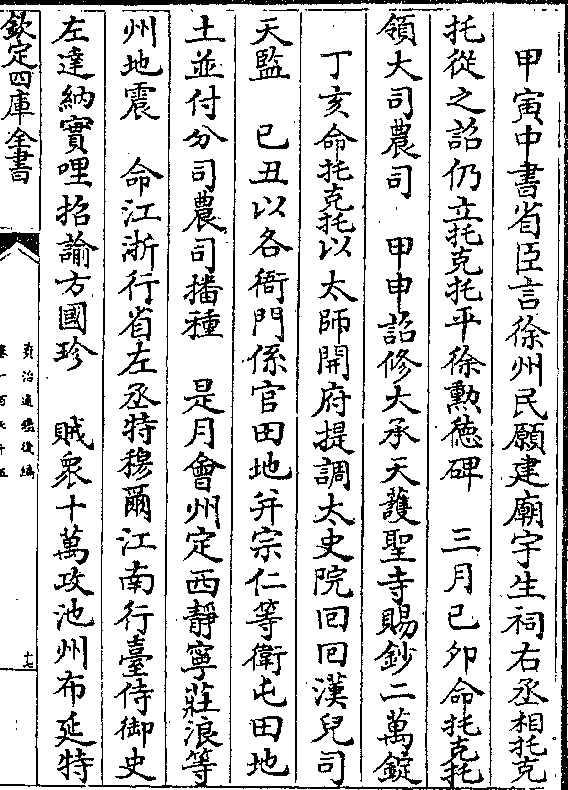 甲寅中書省臣言徐州民願建廟宇生祠右丞相托克
托從之詔仍立托克托平徐勲徳碑　三月己夘命托克托
領大司農司　甲申詔修大承天護聖寺賜鈔二萬錠
丁亥命托克托以太師開府提調太史院回回漢兒司
天監　己丑以各衙門係官田地并宗仁等衛屯田地
土並付分司農司播種　是月會州定西靜寧莊浪等
州地震　命江浙行省左丞特穆爾江南行臺侍御史
左達納實哩招諭方國珍　賊衆十萬攻池州布延特
欽定四庫全書
資治通鑑後編
卷一百七十五
十七